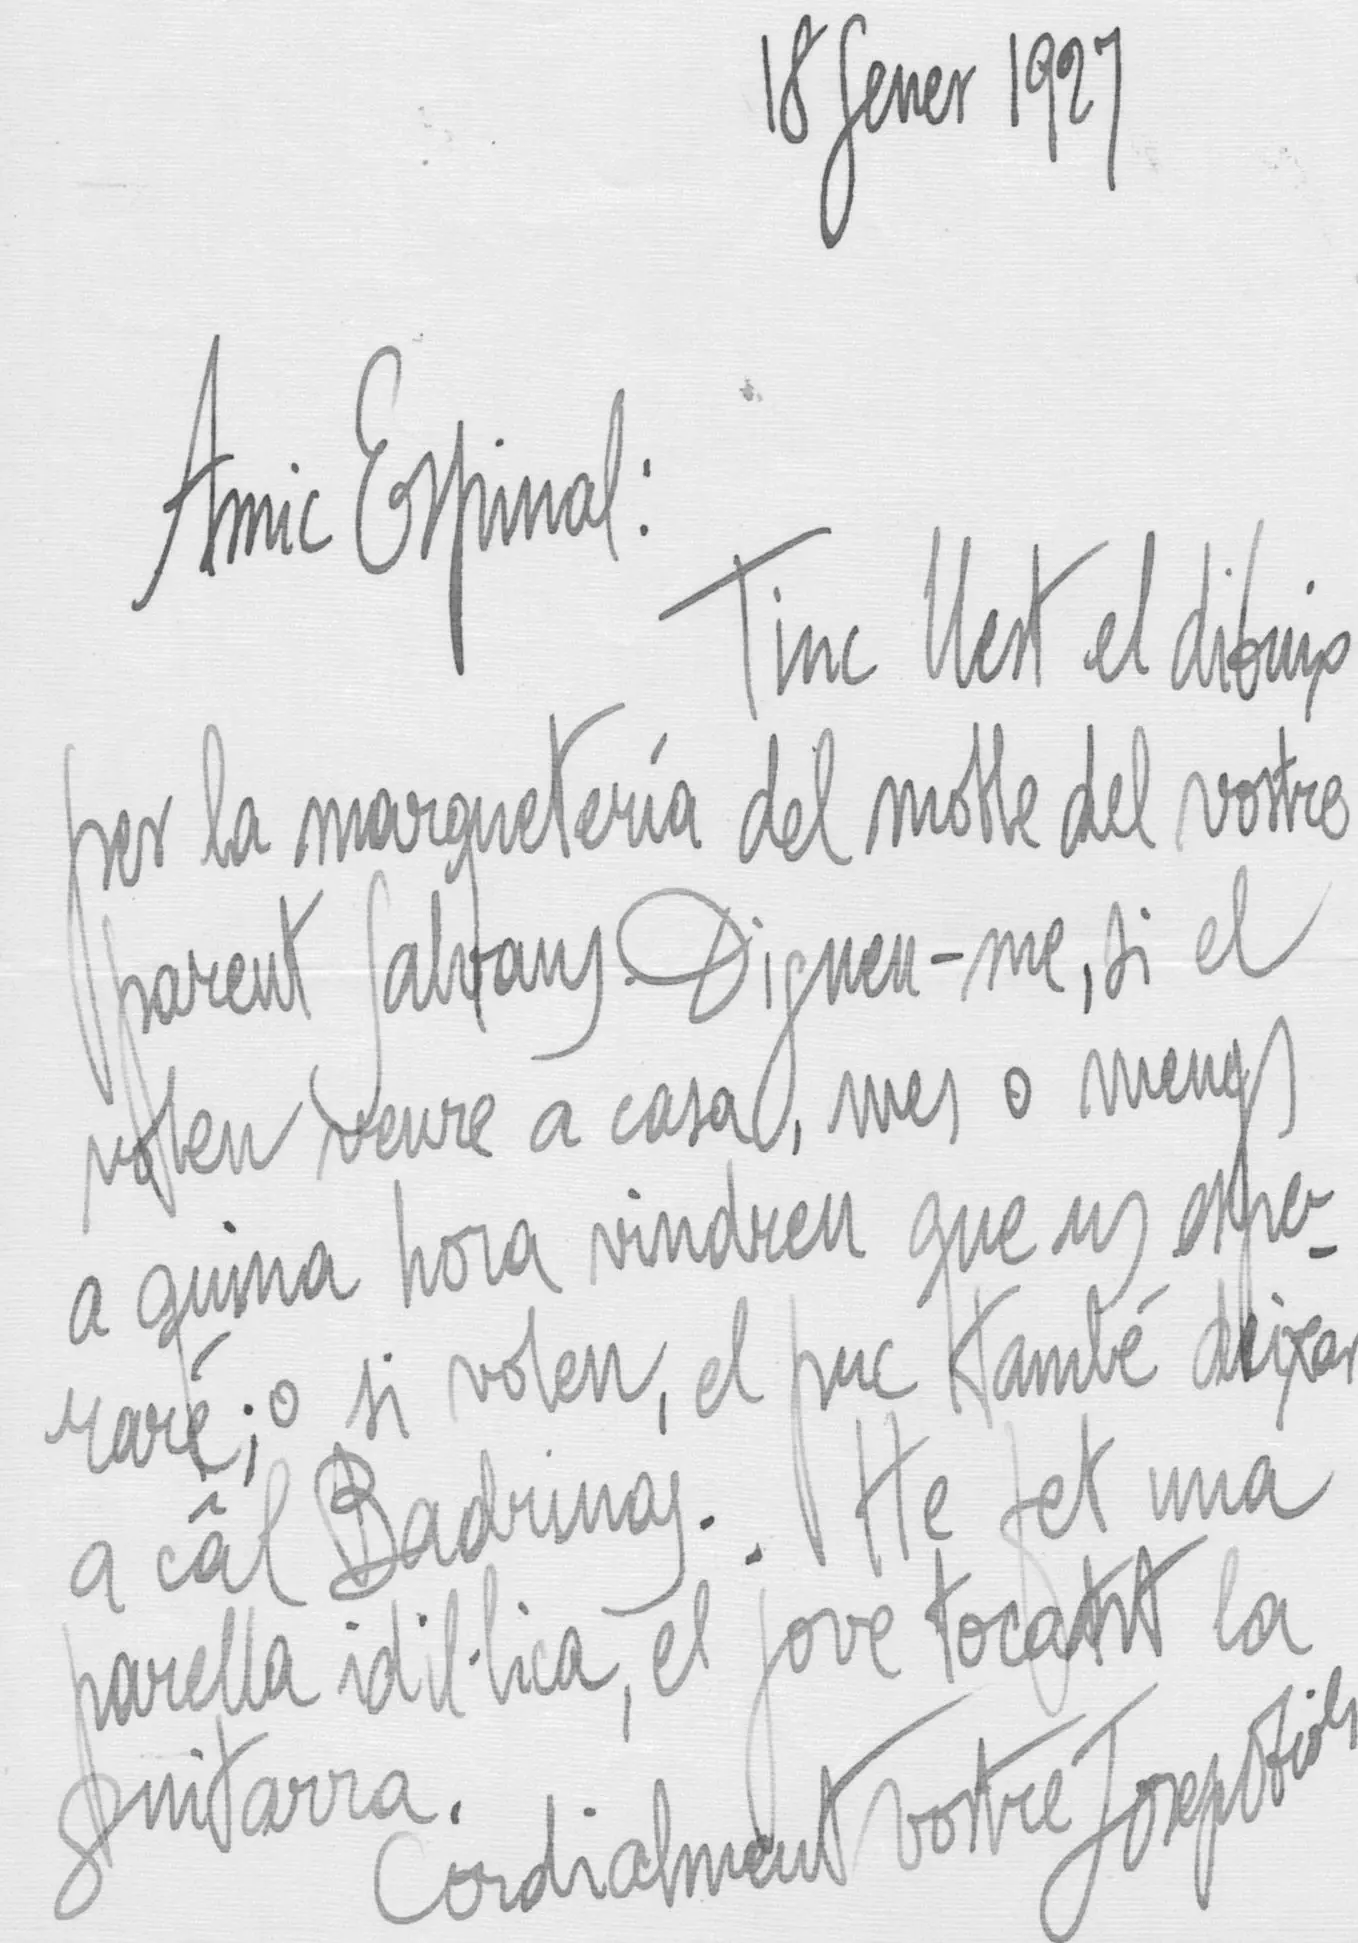 18 Gener 1927
Amic Espinal:
Tinc llest el dibuix
per la marquetería del moble del vostre
parent Galvany. Digueu-me, si el
voleu veure a casa, mes o menys
a quina hora vindreu que us espe-
raré; o si voleu, el puc també deixar
a câl Badrinas. He fet una
parella idil·lica, el jove tocant la
guitarra.
Cordialment vostre Josep Obiols